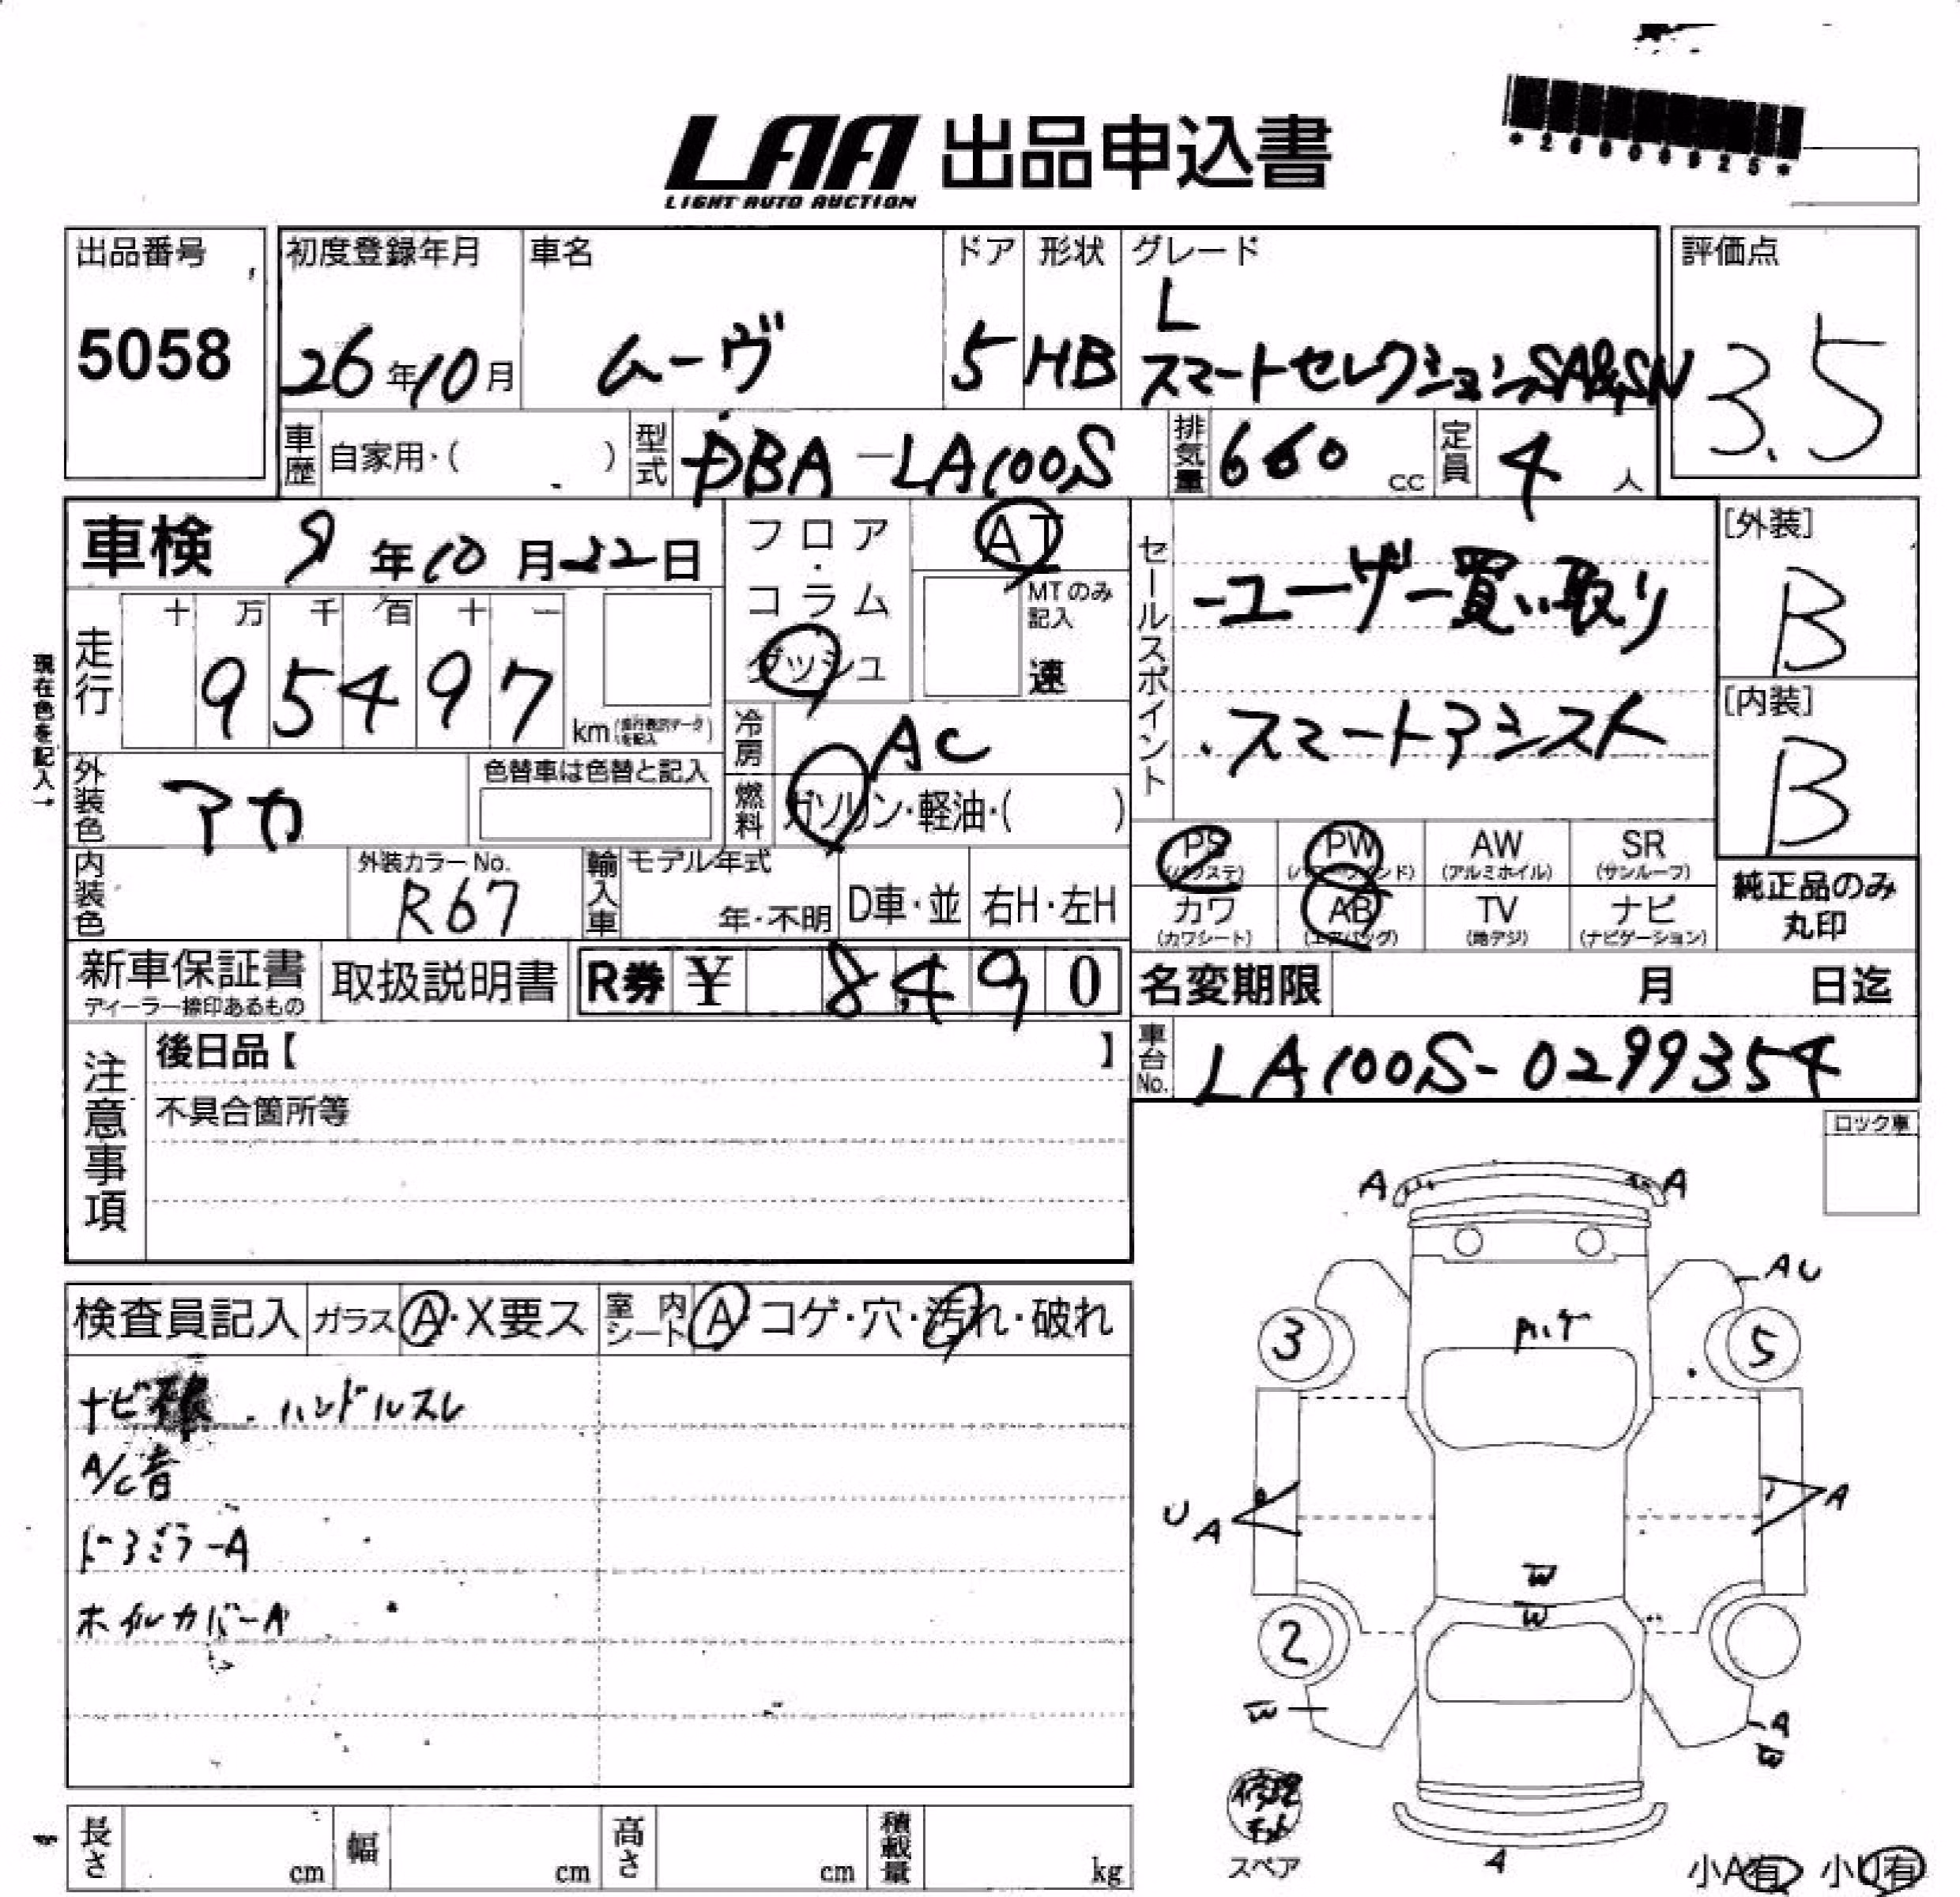 *26806925*
LAA 出品申込書
LIGHT AUTO AUCTION
出品番号
5058
初度登録年月
26年10月
車名
ムーヴ
ドア
5
形状
HB
グレード
L
スマートセレクションSA&SN
評価点
3.5
車歴 自家用・( )
型式 DBA-LA100S
排気量 660 cc
定員 4 人
車検 9年10月22日
フロア・コラム
ダッシュ
AT
MTのみ記入
速
セールスポイント
-ユーザー買い取り
・スマートアシスト
[外装]
B
[内装]
B
現在色を記入→
走行
十 万 千 百 十 一
95497
km(走行表示データを記入)
冷房 AC
燃料 ガソリン・軽油・( )
外装色 アカ
色替車は色替と記入
内装色
外装カラーNo.
R67
輸入車 モデル年式
年・不明 D車・並 右H・左H
PS PW AW SR
(パワステ) (パワーウインド) (アルミホイル) (サンルーフ)
カワ AB TV ナビ
(カワシート) (エアバッグ) (地デジ) (ナビゲーション)
純正品のみ
丸印
新車保証書
ディーラー捺印あるもの
取扱説明書
R券 ¥ 8,490
名変期限 月 日迄
車台No. LA100S-0299354
注意事項
後日品【 】
不具合箇所等
ロック車
検査員記入 ガラス A・X要ス
室内シート A・コゲ・穴・汚れ・破れ
ナビ ハンドルスレ
A/C音
ドアミラーA
ホイルカバーA
A A
AU
3 5
U A A
W
W
2
W A
W
修理キット
スペア
A
小A有 小U有
長さ cm 幅 cm 高さ cm 積載量 kg